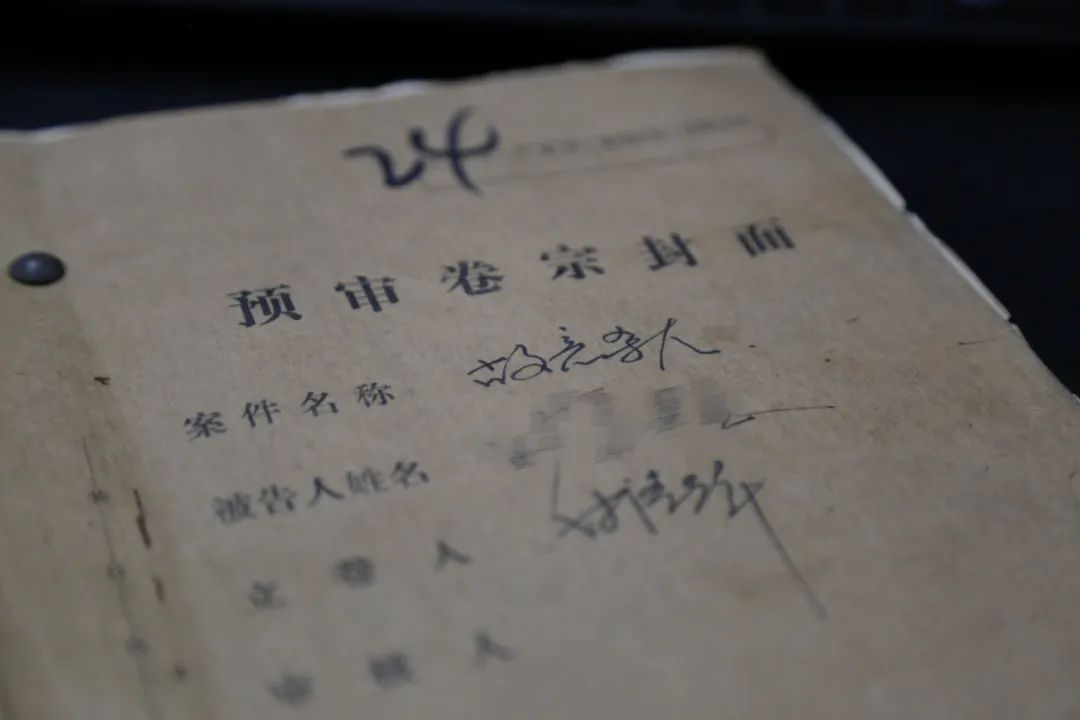 24
预审卷宗封面
案件名称 故意杀人
被告人姓名
立卷人
审核人